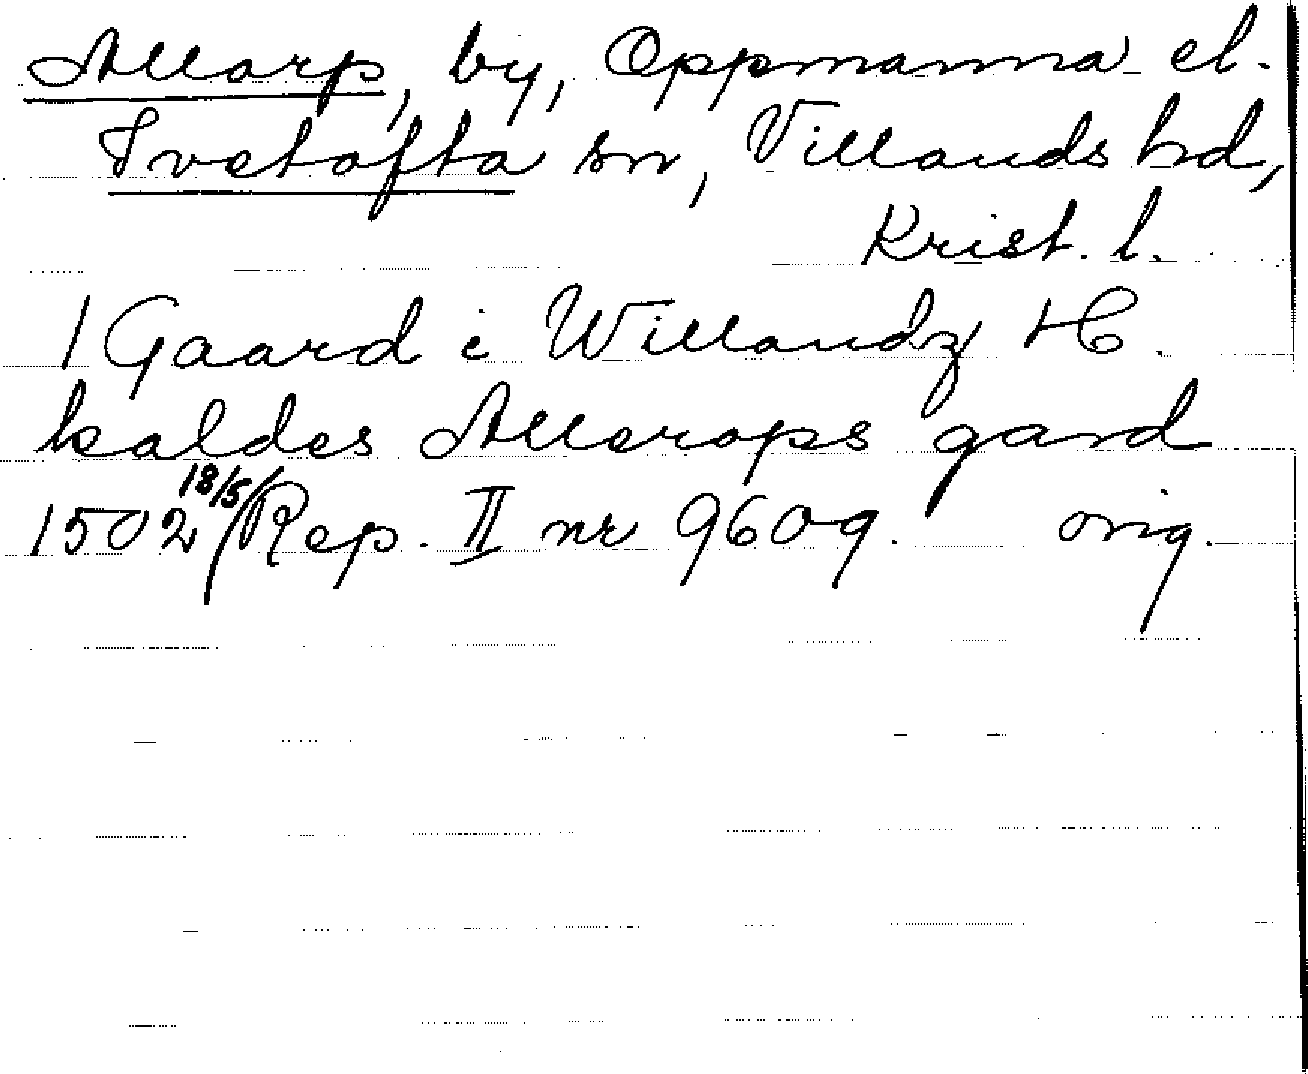 Allarp, by, Oppmanna el.
Ivetofta sn, Villands hd,
Krist. l.
1 Gaard i Willandz H.
kaldes Allerops gard
1502 18/5/Rep. II nr 9609. orig.